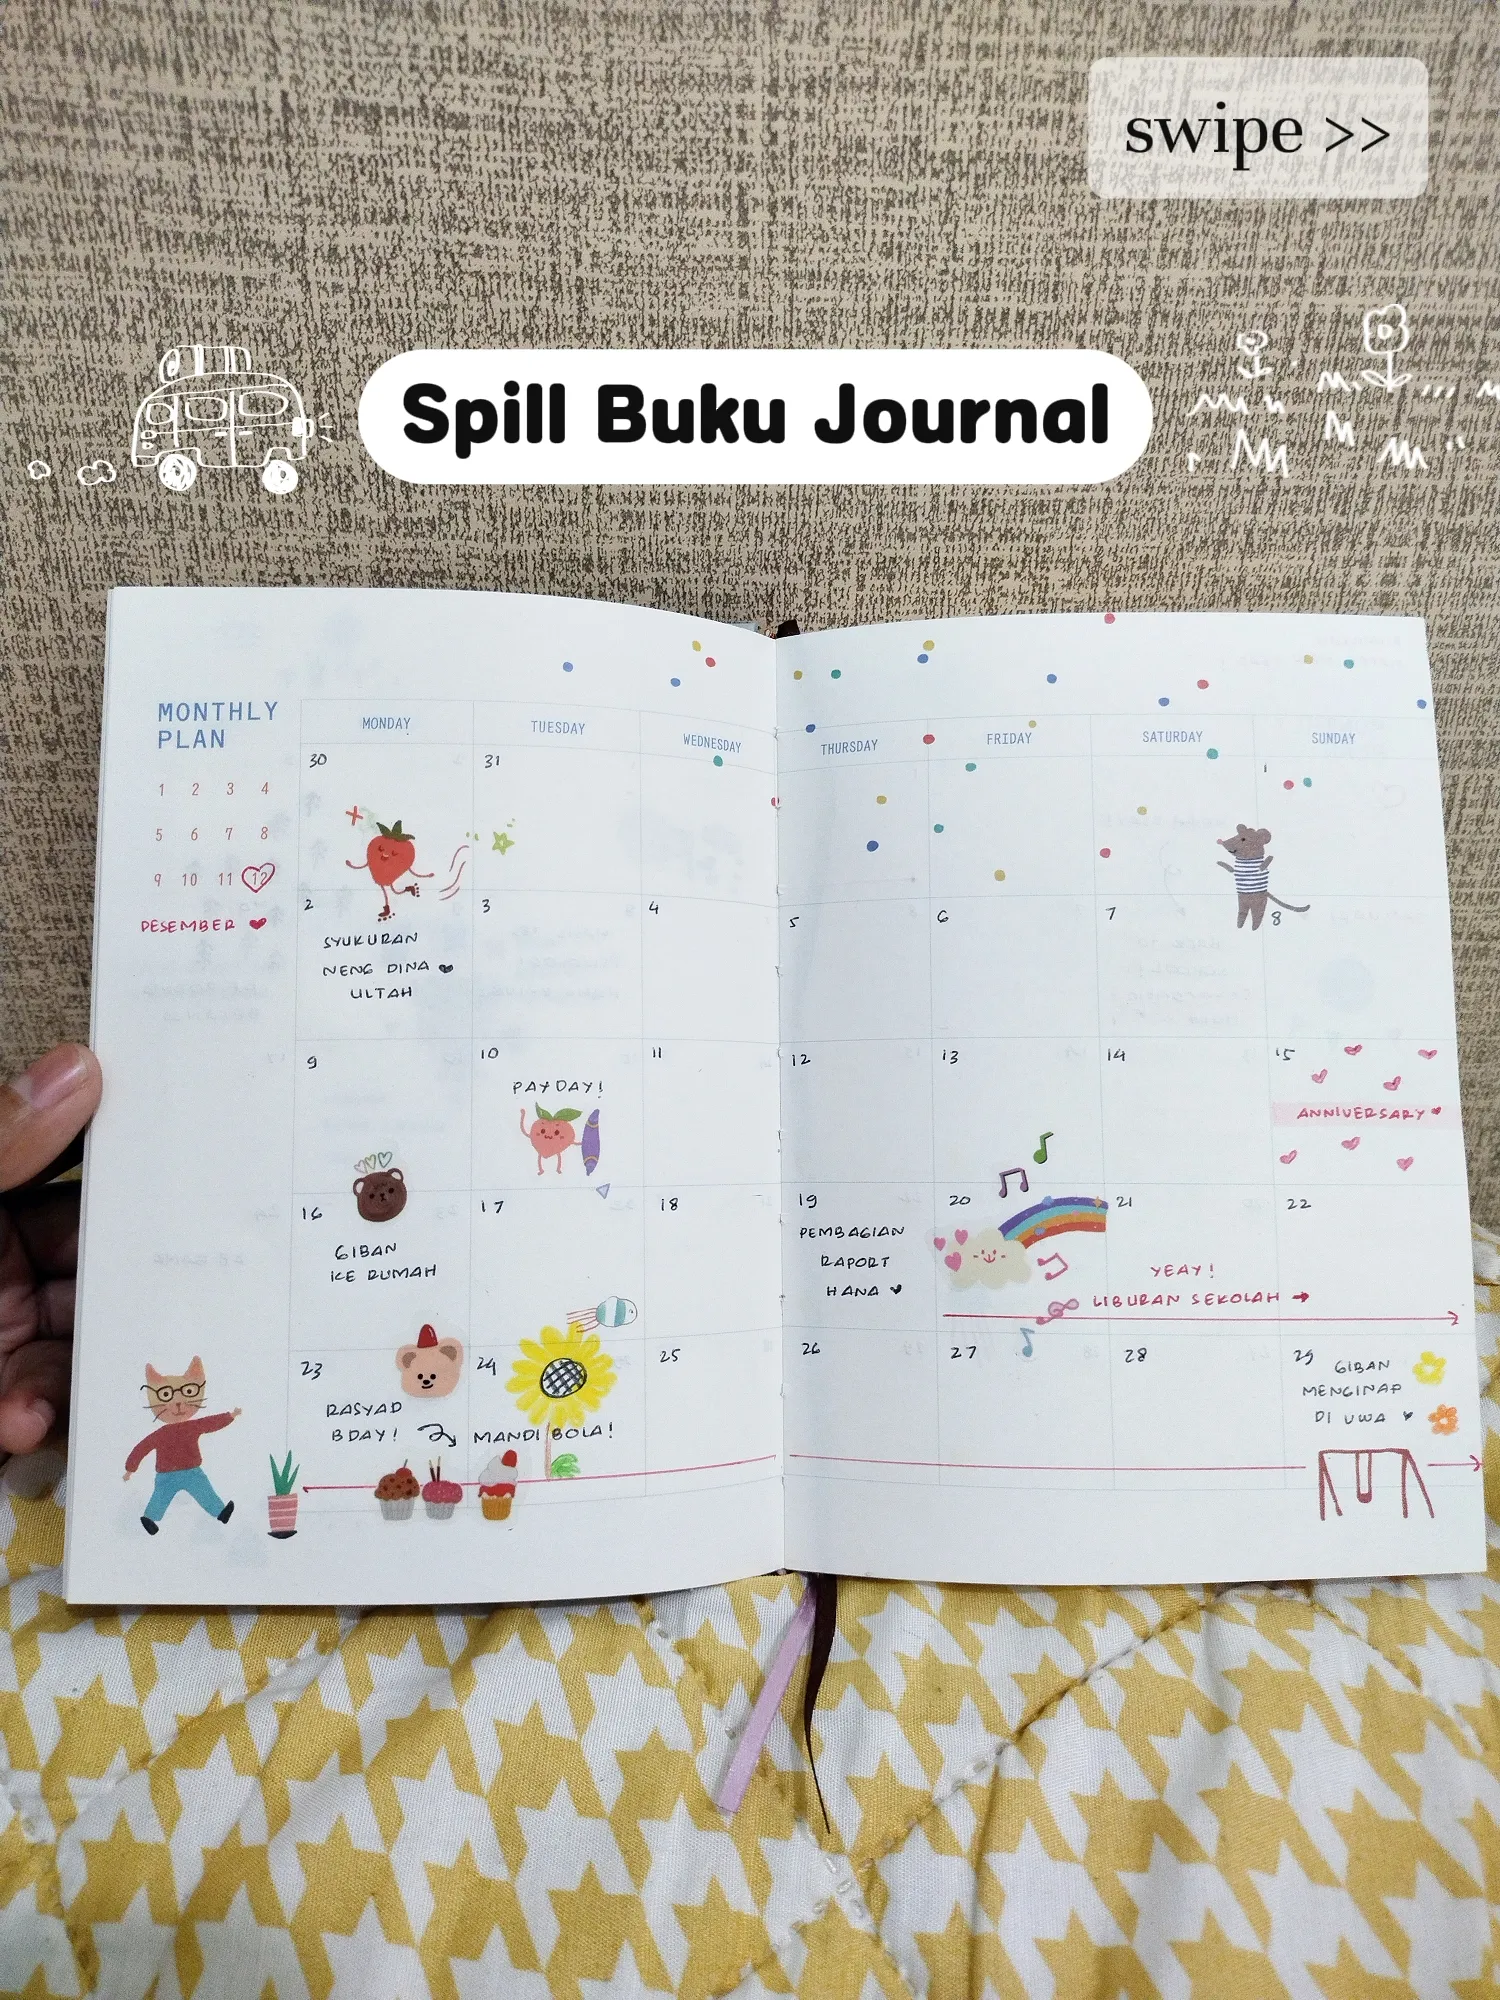 swipe >>
Spill Buku Journal
MONTHLY
PLAN
1 2 3 4
5 6 7 8
9 10 11 12
DESEMBER
MONDAY TUESDAY WEDNESDAY THURSDAY FRIDAY SATURDAY SUNDAY
30 31 1
2 3 4 5 6 7 8
SYUKURAN
NENG DINA
ULTAH
9 10 11 12 13 14 15
PAYDAY!
ANNIVERSARY
16 17 18 19 20 21 22
GIBAN
KE RUMAH
PEMBAGIAN
RAPORT
HANA
YEAY!
LIBURAN SEKOLAH →
23 24 25 26 27 28 29
RASYAD
BDAY!
MANDI BOLA!
GIBAN
MENGINAP
DI UWA